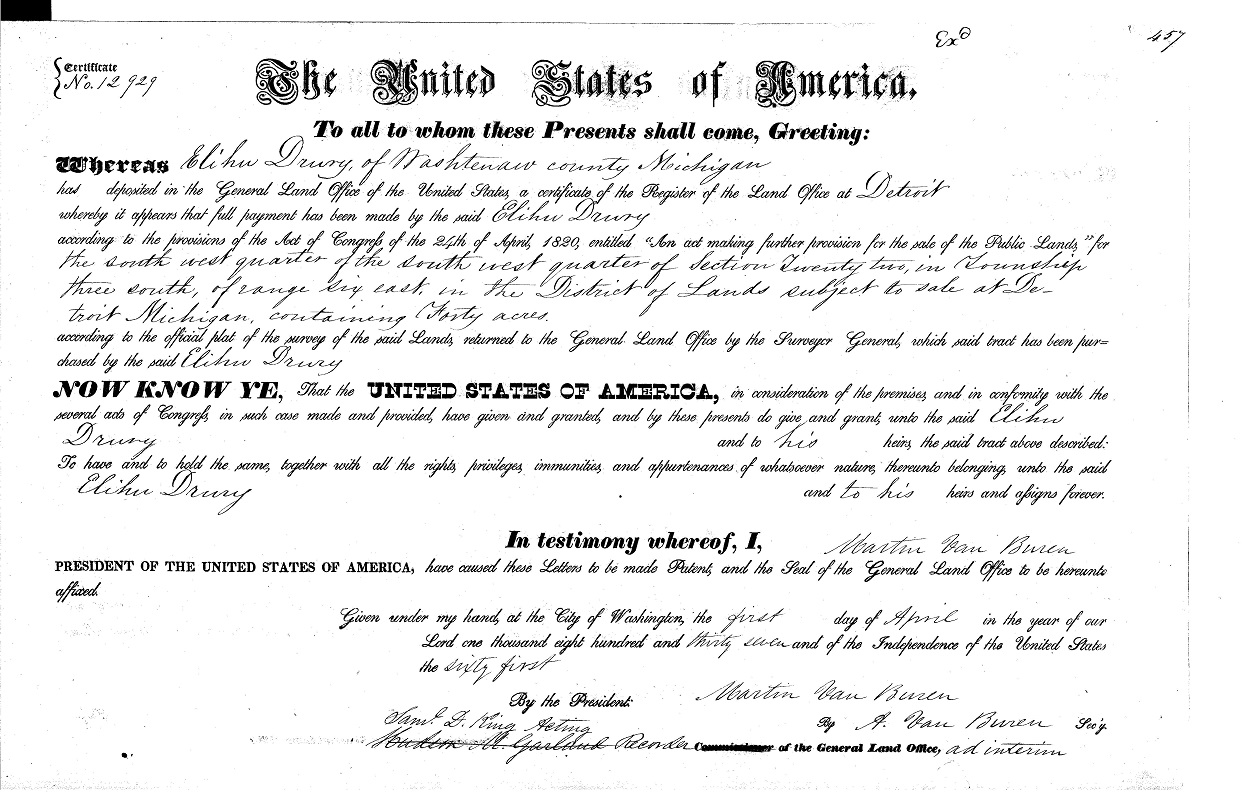 Exd 457
Certificate
No. 12929
The United States of America.
To all to whom these Presents shall come, Greeting:
Whereas Elihu Drury, of Washtenaw county Michigan
has deposited in the General Land Office of the United States, a certificate of the Register of the Land Office at Detroit
whereby it appears that full payment has been made by the said Elihu Drury
according to the provisions of the Act of Congress of the 24th of April, 1820, entitled "An act making further provision for the sale of the Public Lands," for
the south west quarter of the south west quarter of Section Twenty two, in Township
three south, of range six east, in the District of Lands subject to sale at De-
troit Michigan, containing Forty acres.
according to the official plat of the survey of the said Lands, returned to the General Land Office by the Surveyor General, which said tract has been pur=
chased by the said Elihu Drury
NOW KNOW YE, That the UNITED STATES OF AMERICA, in consideration of the premises, and in conformity with the
several acts of Congress, in such case made and provided, have given and granted, and by these presents do give and grant, unto the said Elihu
Drury and to his heirs, the said tract above described:
To have and to hold the same, together with all the rights, privileges, immunities, and appurtenances of whatsoever nature, thereunto belonging, unto the said
Elihu Drury and to his heirs and assigns forever.
In testimony whereof, I, Martin Van Buren
PRESIDENT OF THE UNITED STATES OF AMERICA, have caused these Letters to be made Patent, and the Seal of the General Land Office to be hereunto
affixed.
Given under my hand, at the City of Washington, the first day of April in the year of our
Lord one thousand eight hundred and thirty seven and of the Independence of the United States
the sixty first
By the President: Martin Van Buren
By A. Van Buren Sec'y.
Saml. D. King Acting
Hudson M. Garland Recorder Commissioner of the General Land Office, ad interim